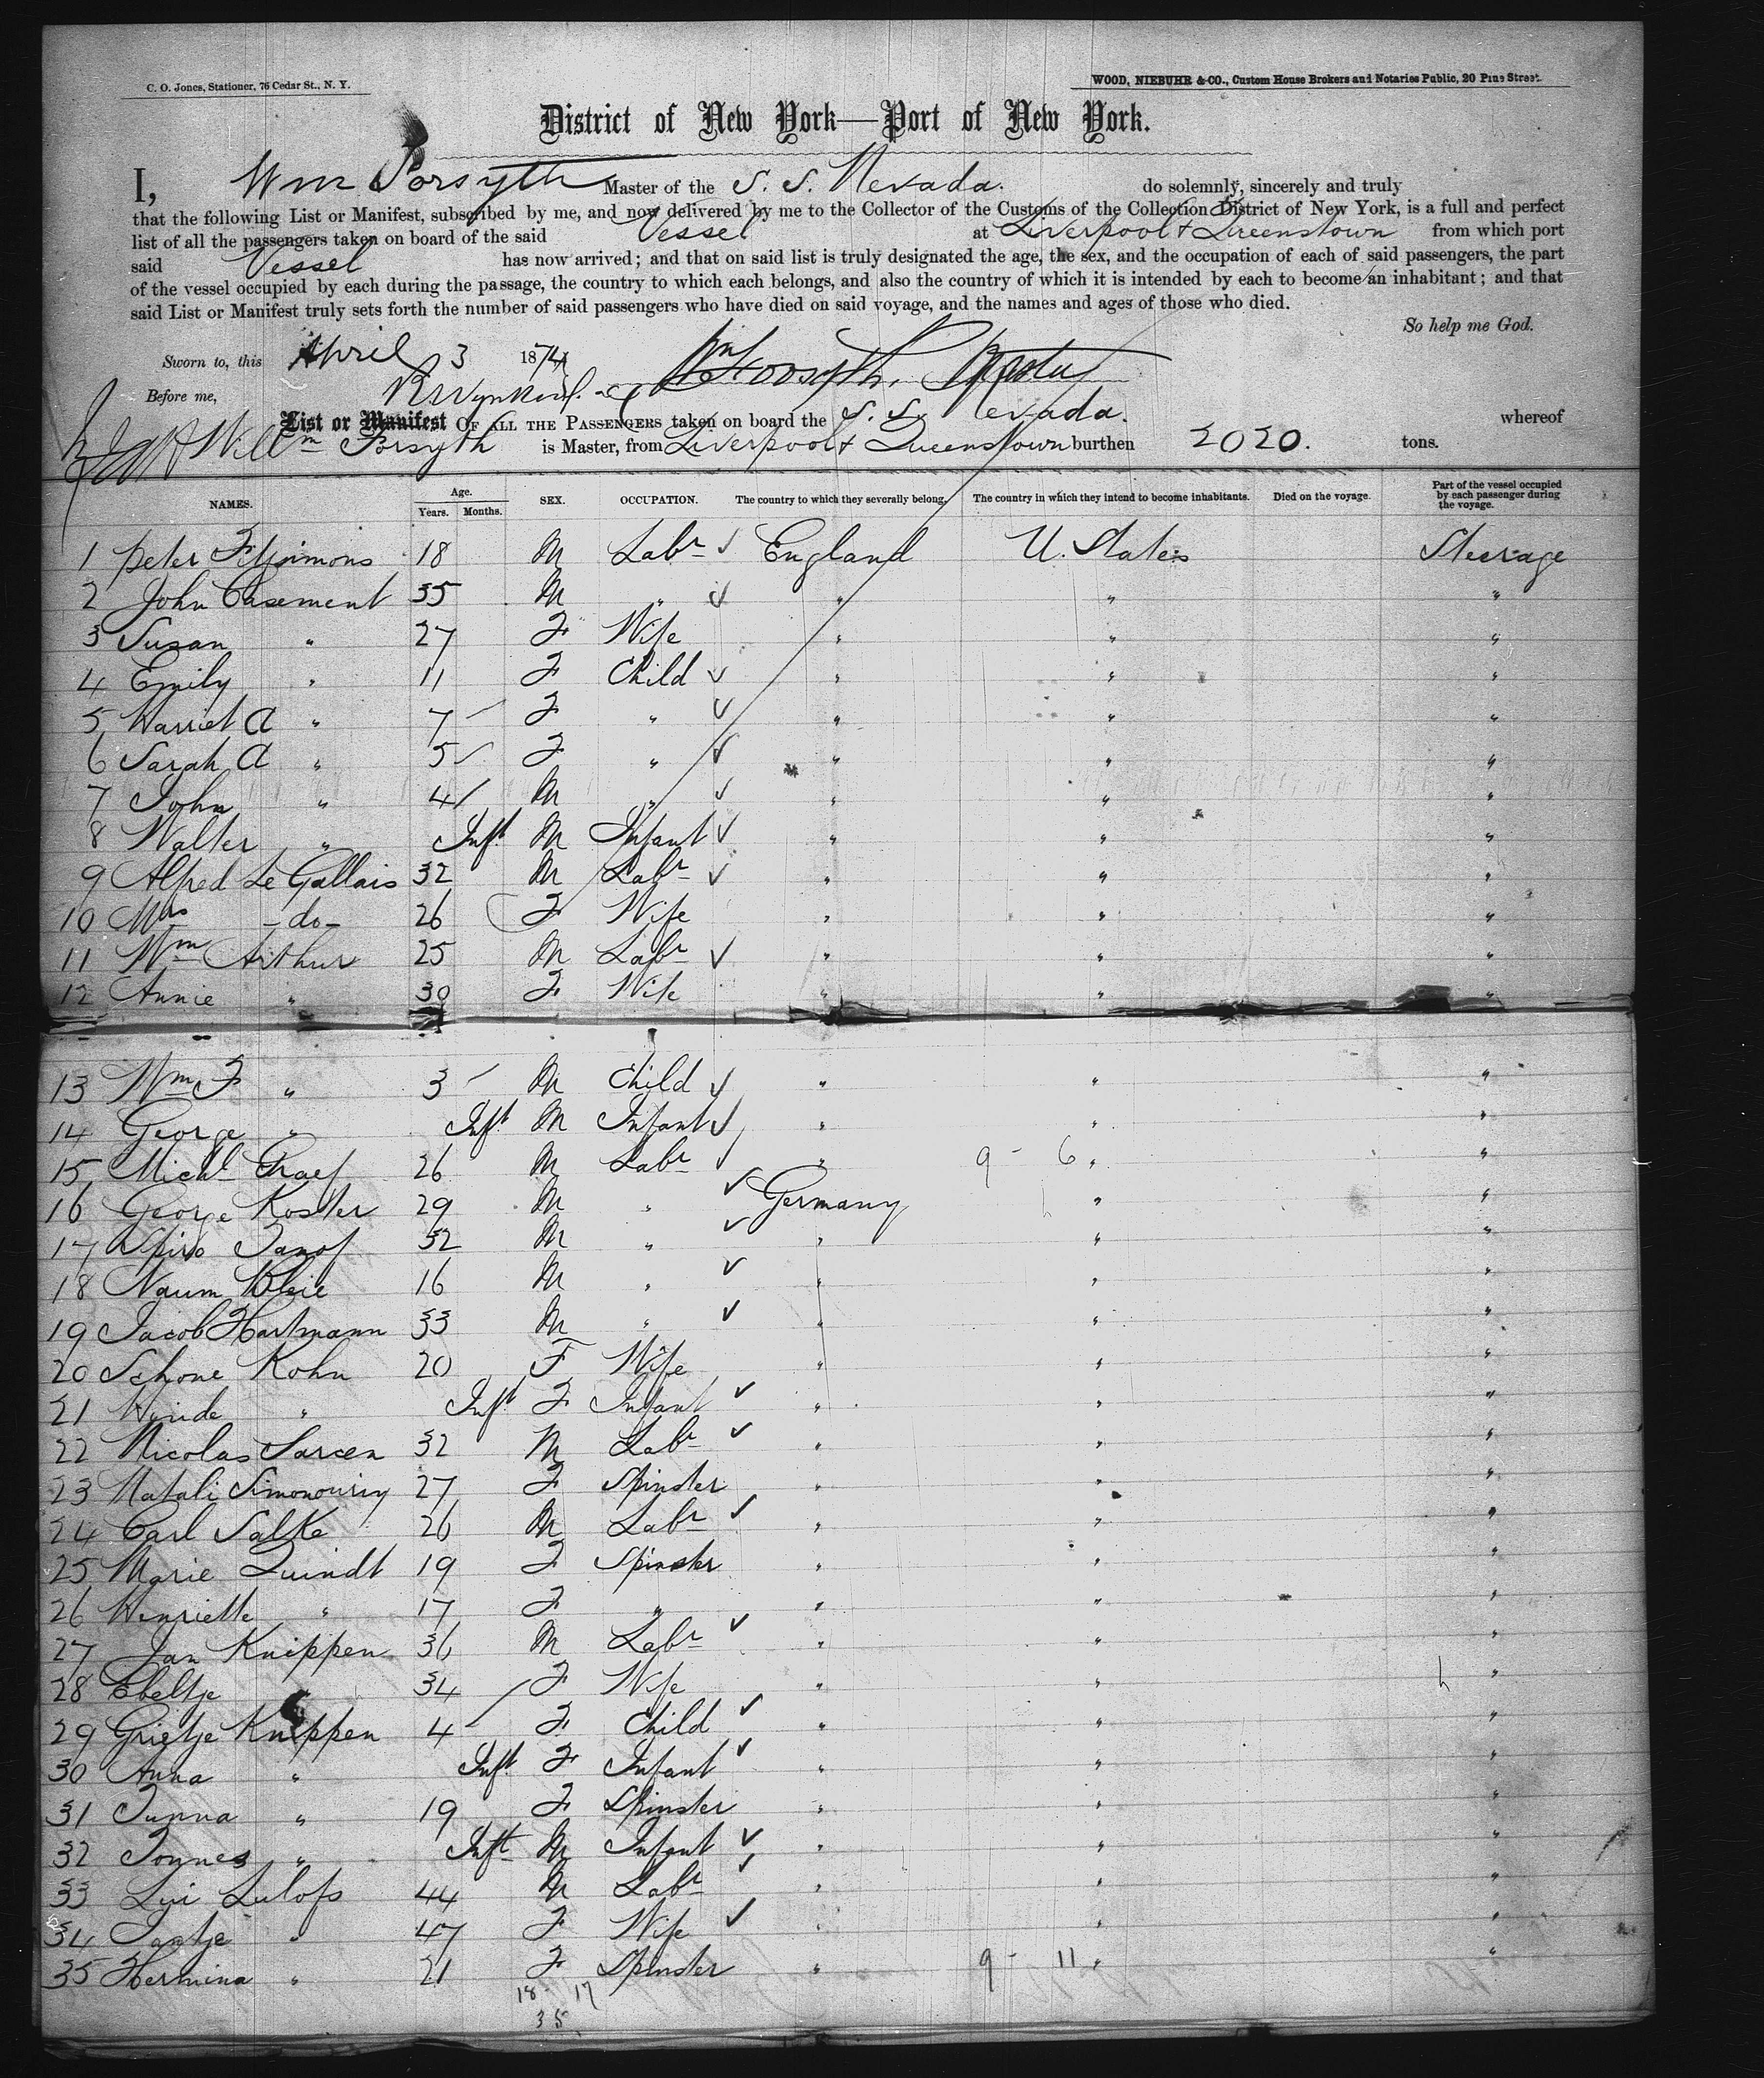 C. O. Jones, Stationer, 76 Cedar St., N. Y.
WOOD, NIEBUHR & CO., Custom House Brokers and Notaries Public, 20 Pine Street.
District of New York—Port of New York.
I, Wm Forsyth Master of the S. S. Nevada. do solemnly, sincerely and truly
that the following List or Manifest, subscribed by me, and now delivered by me to the Collector of the Customs of the Collection District of New York, is a full and perfect
list of all the passengers taken on board of the said Vessel at Liverpool & Queenstown from which port
said Vessel has now arrived; and that on said list is truly designated the age, the sex, and the occupation of each of said passengers, the part
of the vessel occupied by each during the passage, the country to which each belongs, and also the country of which it is intended by each to become an inhabitant; and that
said List or Manifest truly sets forth the number of said passengers who have died on said voyage, and the names and ages of those who died.
So help me God.
Sworn to, this April 3 1874 Wm Forsyth, Master
Before me,
List or Manifest OF ALL THE PASSENGERS taken on board the S. S. Nevada. whereof
Willm Forsyth is Master, from Liverpool & Queenstown burthen 2020. tons.
NAMES. Age. Years. Months. SEX. OCCUPATION. The country to which they severally belong. The country in which they intend to become inhabitants. Died on the voyage. Part of the vessel occupied by each passenger during the voyage.
1 Peter Fitzsimons 18 M Labr England U. States Steerage
2 John Casement 35 M " " " "
3 Susan " 27 F Wife " " "
4 Emily " 11 F Child " " "
5 Harriet A " 7 F " " " "
6 Sarah A " 5 F " " " "
7 John " 4 M " " " "
8 Walter " Inft M Infant " " "
9 Alfred Le Gallais 32 M Labr " " "
10 Mrs -do- 26 F Wife " " "
11 Wm Arthur 25 M Labr " " "
12 Annie " 30 F Wife " " "
13 Wm F " 3 M Child " " "
14 George " Inft M Infant " " "
15 Michl Graef 26 M Labr " 9 - 6 " "
16 George Koster 29 M " Germany " "
17 Spiro 32 M " " " "
18 Naum 16 M " " " "
19 Jacob Hartmann 33 M " " " "
20 Schone Kohn 20 F Wife " " "
21 Hinde " Inft F Infant " " "
22 Nicolas Sarcen 32 M Labr " " "
23 Natali 27 F Spinster " " "
24 Carl Salke 26 M Labr " " "
25 Marie Quindt 19 F Spinster " " "
26 Henriette " 17 F " " " "
27 Jan Knippen 36 M Labr " " "
28 Ebeltje 34 F Wife " " "
29 Grietje Knippen 4 F Child " " "
30 Anna " Inft F Infant " " "
31 " 19 F Spinster " " "
32 " Inft M Infant " " "
33 Lulofs 44 M Labr " " "
34 " 47 F Wife " " "
35 Hermina " 21 F Spinster " 9 - 11 " "
18 17
35